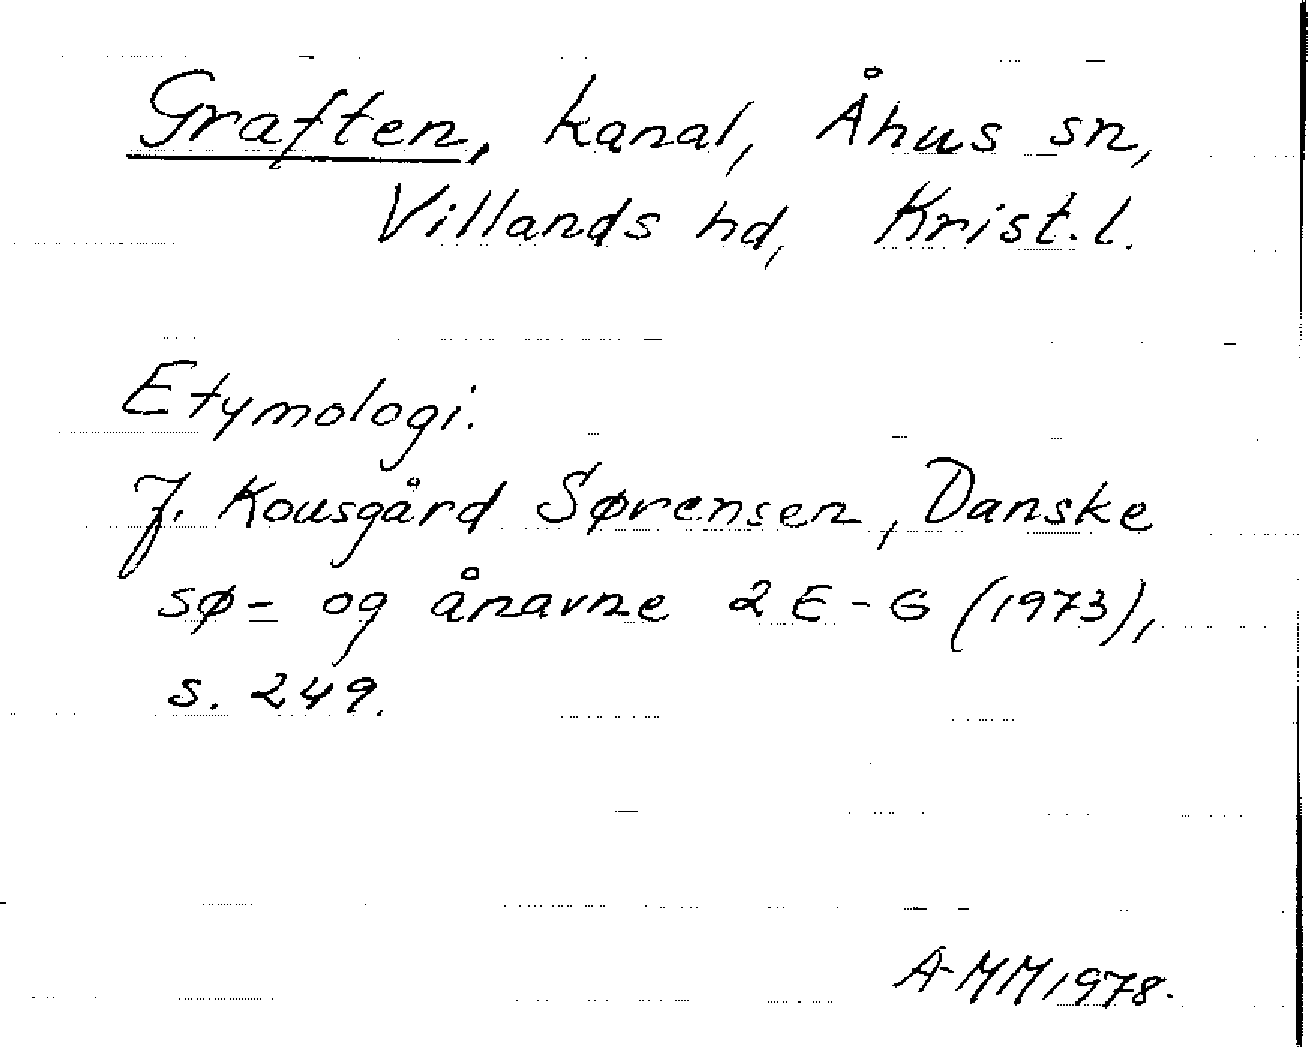 Graften, kanal, Åhus sn,
Villands hd, Krist. l.
Etymologi.
J. Kousgård Sørensen, Danske
sø- og ånavne 2 E-G (1973),
s. 249.
A-MM 1978.